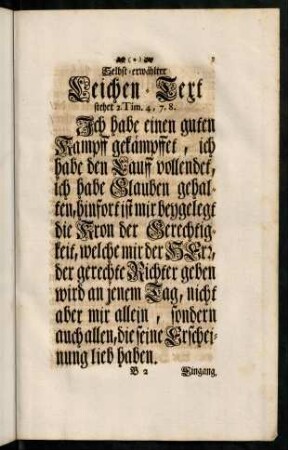 ( o )
Selbst-erwählter
Leichen-Text
stehet 2. Tim. 4, 7. 8.
Ich habe einen guten
Kampff gekämpffet, ich
habe den Lauff vollendet,
ich habe Glauben gehal-
ten, hinfort ist mir beygelegt
die Kron der Gerechtig-
keit, welche mir der HErr,
der gerechte Richter geben
wird an jenem Tag, nicht
aber mir allein, sondern
auch allen, die seine Erschei-
nung lieb haben.
B 2 Eingang